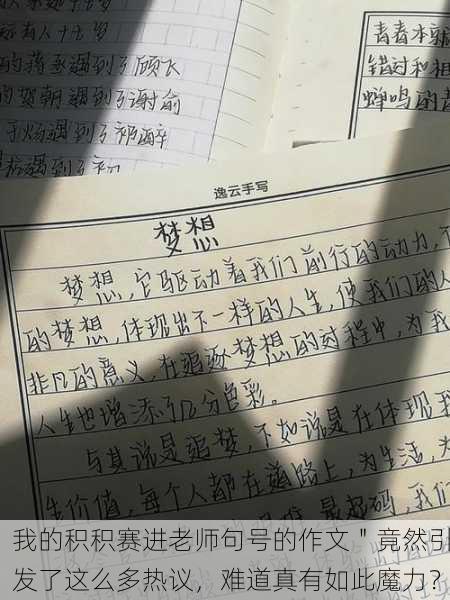 远有人十七岁
的蒋丞遇到了顾飞
的贺朝遇到了谢俞
于炀遇到了祁醉
遇到了初
青春本就
错过和相
蝉鸣的
逸云手写
梦想
梦想,它驱动着我们前行的动力,
的梦想,体现出不一样的人生,使我们的人
非凡的意义,在追逐梦想的过程中,为我
人生也增添了几分色彩。
与其说是追梦,不如说是在体现我
生价值,每个人都在道路上,为生活,为
最起码,我们
我的积积赛进老师句号的作文＂竟然引
发了这么多热议，难道真有如此魔力？